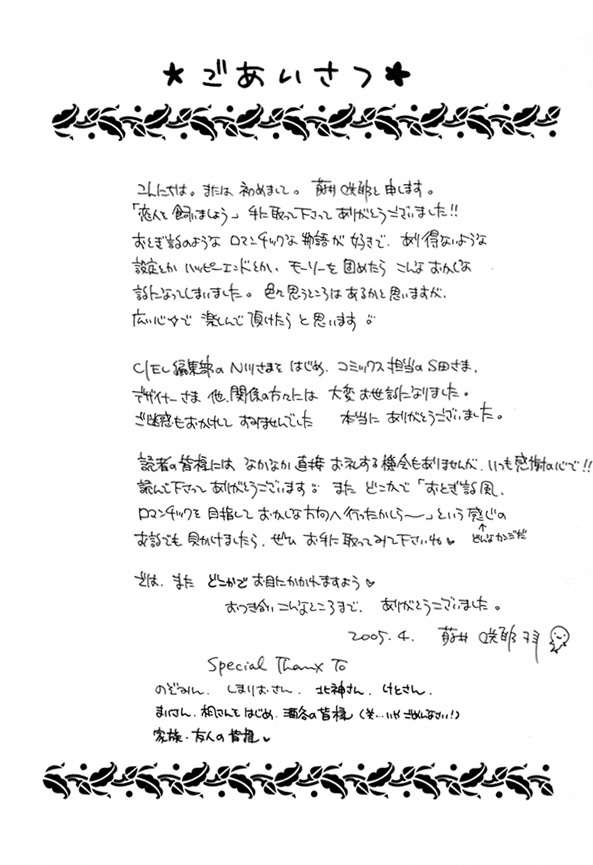 ★ごあいさつ✱
こんにちは。または 初めまして。藤井咲耶と申します。
「恋人を飼いましょう」手に取って下さって ありがとうございました!!
おとぎ話のような ロマンチックな 物語が 好きで、あり得ないような
設定とか ハッピーエンドとか、モーソーを 固めたら こんな おかしな
話になってしまいました。色々思うところは あるかと思いますが、
広い心で 楽しんで 頂けたら と思います。
CIEL編集部の N川さまを はじめ、コミックス担当の S田さま、
デザイナーさま 他、関係の方々には 大変お世話になりました。
ご迷惑もおかけして すみませんでした 本当に ありがとうございました。
読者の皆様には なかなか 直接 お礼する機会もありませんが、いつも感謝の心で!!
読んで下さって ありがとうございます。また どこかで「おとぎ話風、
ロマンチックを 目指して おかしな方向へ行ったかしら〜」という感じの
お話でも 見かけましたら、ぜひ お手に取ってみて下さいね♥
↑どんなカンジだ
では、また どこかで お目にかかれますよう♥
おつき合い こんなところまで、ありがとうございました。
2005.4. 藤井 咲耶 拝
Special Thanx To
のぞみん、しまりおさん、北神さん、けとさん、
まいさん、相さんを はじめ、酒谷の皆様 (そ…いや ごめんなさい!)
家族・友人の皆様♥